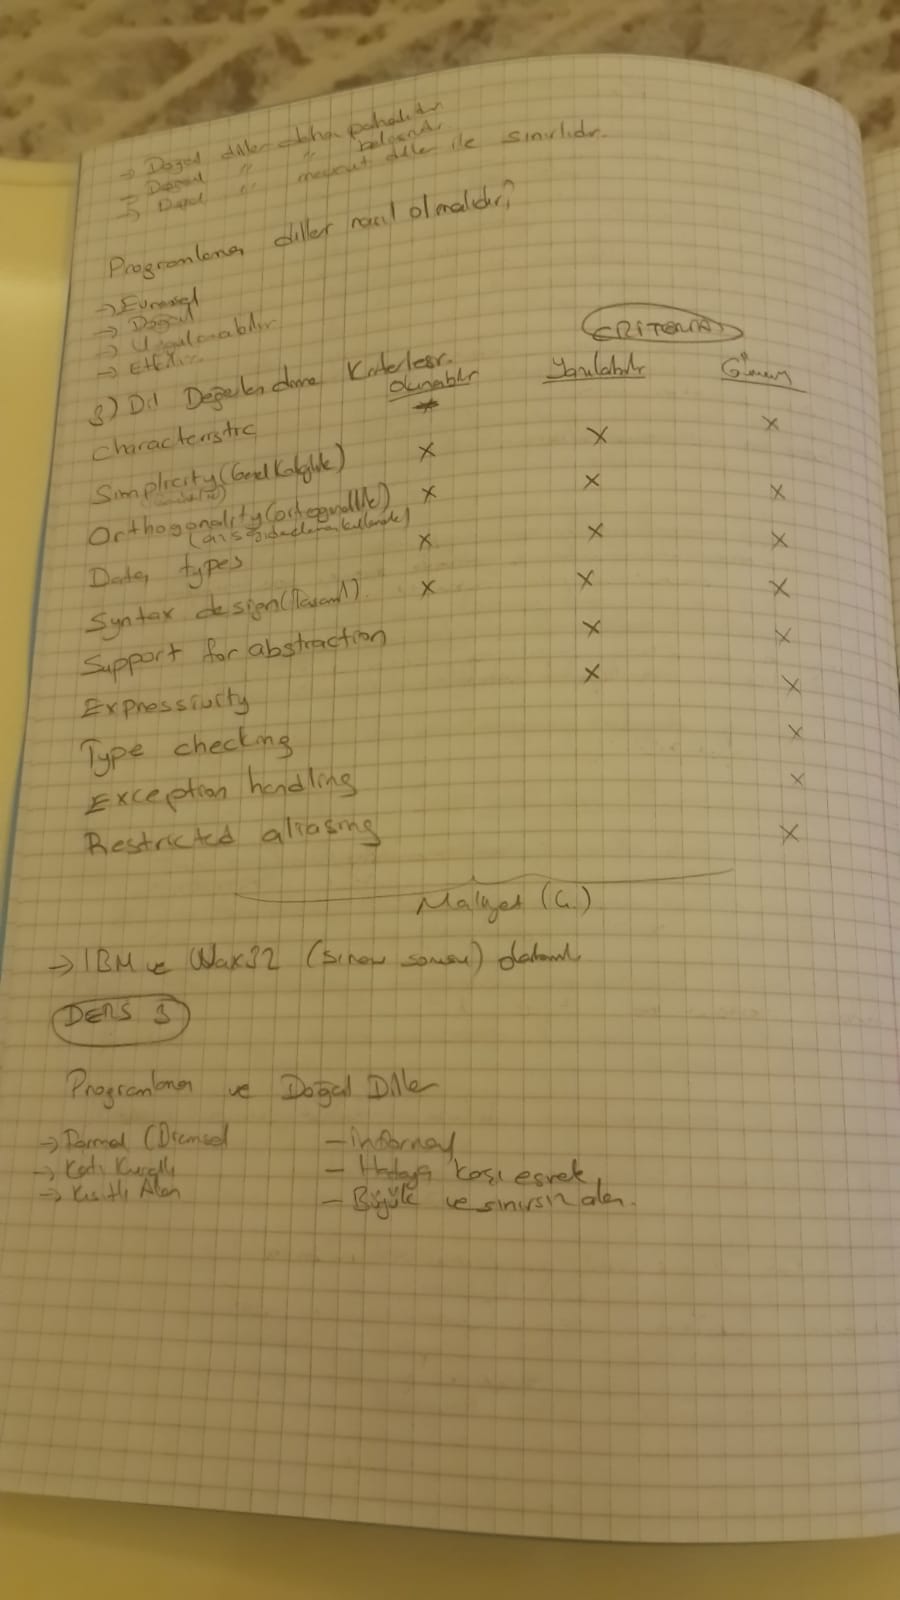 → Doğal diller daha pahalıdır
→ Doğal " "
→ Doğal " mevcut diller ile sınırlıdır.
Programlama diller nasıl olmalıdır?
→ Evrensel
→ Doğal
→ Uygulanabilir
→ Etkin
CRITERIA
3) Dil Değerlendirme Kriterleri.
Okunabilir Yazılabilir Güven
characteristic
Simplicity (Genel Kolaylık) X X X
Orthogonality (ortogonallik) X X X
Data types X X X
Syntax design (Tasarım) X X X
Support for abstraction X X
Expressivity X X
Type checking X
Exception handling X
Restricted aliasing X
Maliyet (C.)
→ IBM ve Wax32 (sınav sorusu)
DERS 3
Programlama ve Doğal Diller
→ Formal - informal
→ Katı Kurallı - Hataya karşı esnek
→ Kısıtlı Alan - Büyük ve sınırsız alan.